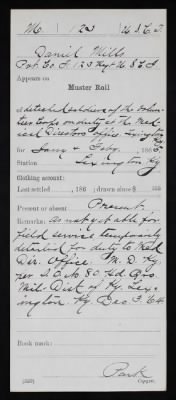 M. 123 U.S.C.T.
Daniel Mills
Pvt. Co. I, 123 Regt U.S.C.I.
Appears on
Muster Roll
a detached soldiers of the Volun-
teer Corps on duty at the Med-
ical Directors office Lexington
for Jany & Feby, 1865.
Station Lexington Ky
Clothing account:
Last settled, 186 ; drawn since $ 100
Present or absent Present
Remarks: Is not capable for
field service temporarily
detailed for duty to Med
Dir. Office. M. D. Ky
per S.O. No 80. Hd Qrs
Mil. Dist. of Ky. Lex-
ington Ky Dec 3 64
Book mark:
Park
(329) Copyist.